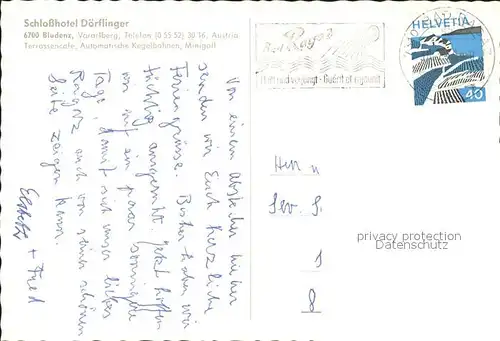 Schloßhotel Dörflinger
6700 Bludenz, Vorarlberg, Telefon (0 55 52) 30 16, Austria
Terrassencafe, Automatische Kegelbahnen, Minigolf
Bad Ragaz
HELVETIA
40
Von einem Abstecher hieher
senden wir Euch herzliche
Feriengrüsse. Bisher haben wir
tüchtig ausgeruht. Jetzt hoffen
wir auf ein paar sonnige
Tage, damit sich unser liebes
Ragaz auch von seiner schönen
Seite zeigen kann.
+ Fred
Herr
privacy protection
Datenschutz